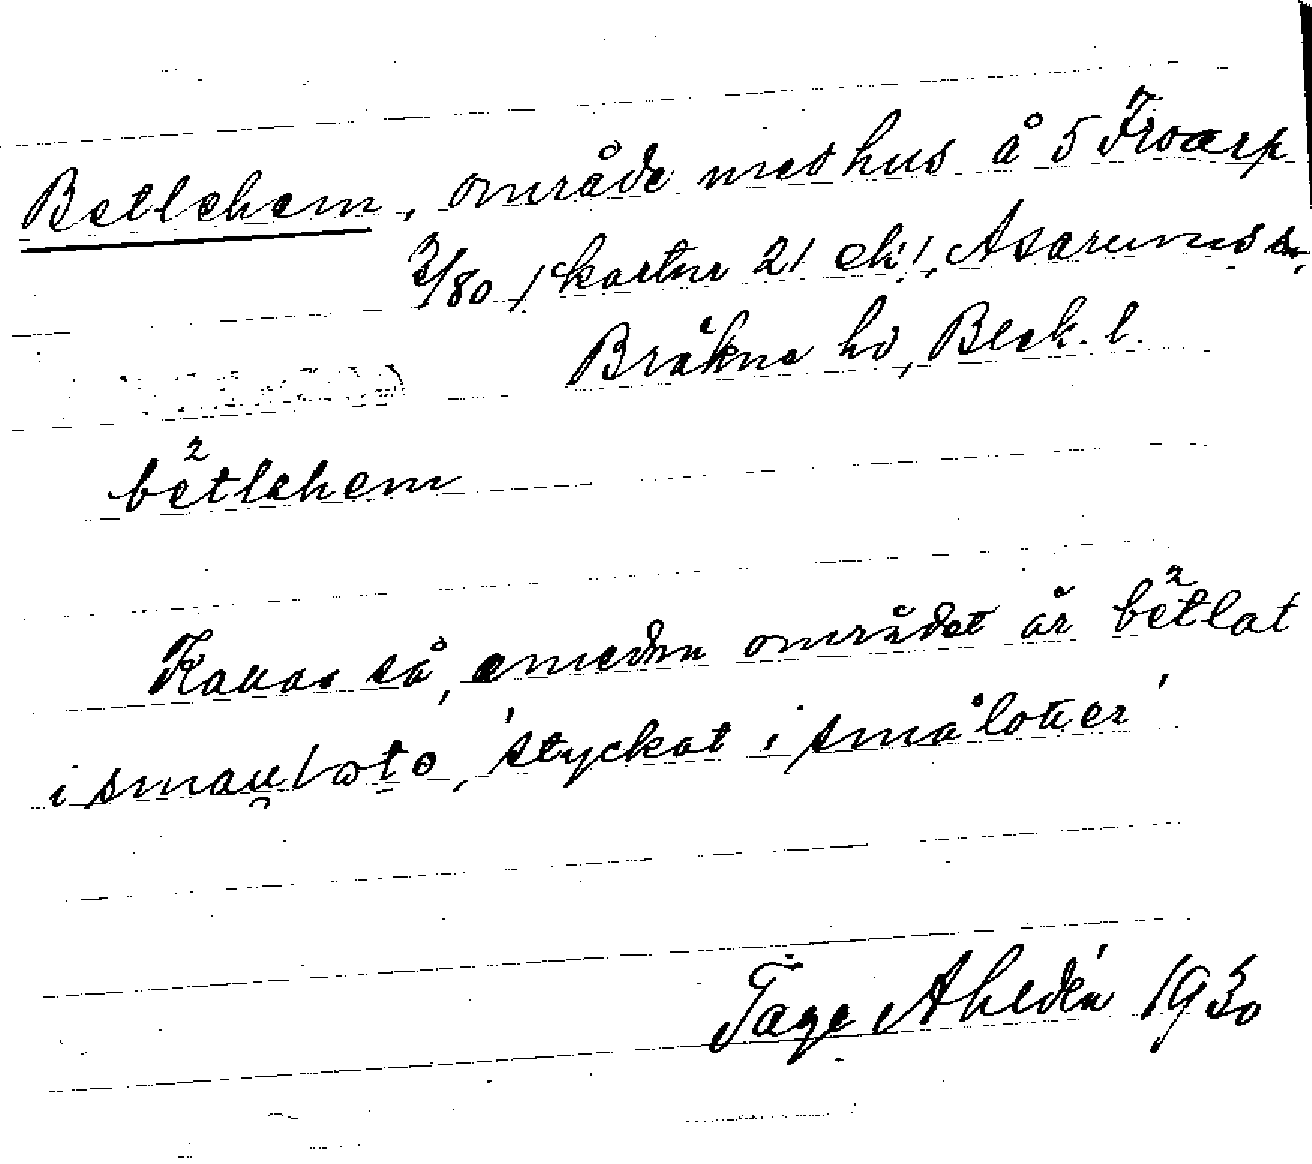 Betlehem, område med hus å 5 Froarp
3/80 (kartnr 21 ek), Asarums sn,
Bräkne hd, Blek. l.
be²tlehem
Kauas så, emedan området är be²tlat
i smau lɷtɷ, 'styckat i små lotter'
Tage Ahldén 1930